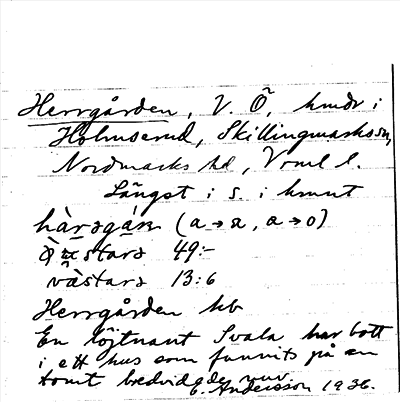 Herrgården, V. Ö, hmdr i
Holmserud, Skillingmarks sn,
Nordmarks hd, Vrml l.
Längst i S. i hmnt
hàrsgán (a→a, a→o)
Ö̀stars 49:-
vä̀stars 13:6
Herrgården kb
En löjtnant Svala har bott
i ett hus som funnits på en
tomt bredvid de nuv.
E. Andersson 1936.